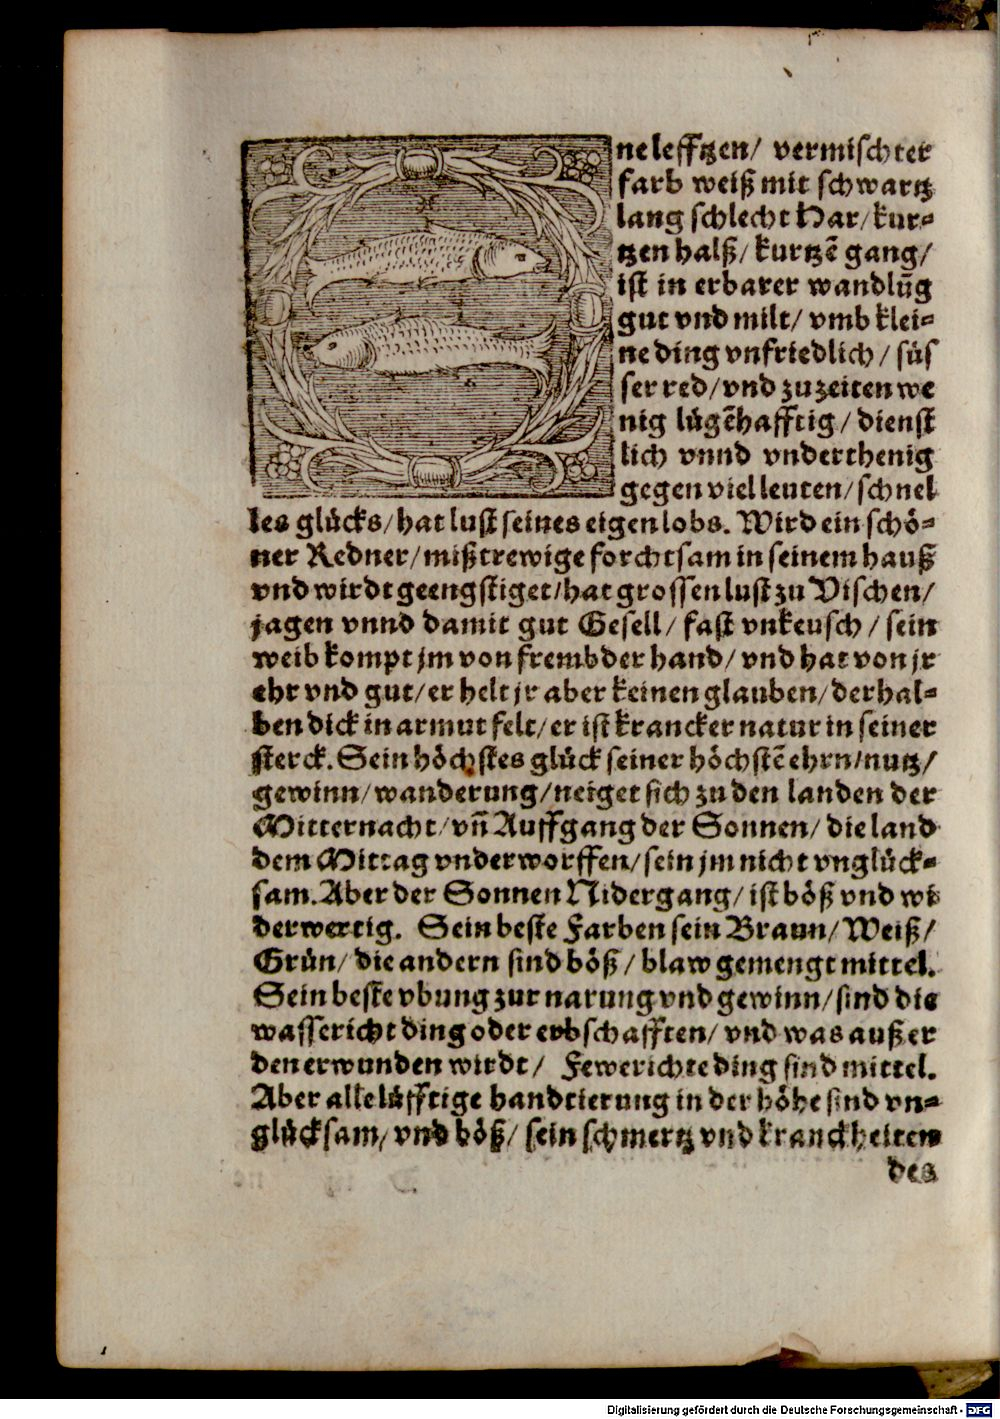 ne lefftzen/ vermischter
farb weiß mit schwartz
lang schlecht Har/ kur⸗
tzen halß/ kurtzē gang/
ist in erbarer wandlūg
gut vnd milt/ vmb klei⸗
ne ding vnfriedlich/ süs
ser red/ vnd zu zeiten we
nig lügēhafftig/ dienst
lich vnnd vnderthenig
gegen viel leuten/ schnel
les glücks/ hat lust seines eigen lobs. Wird ein schö⸗
ner Redner/ mißtrewige forchtsam in seinem hauß
vnd wirdt geengstiget/ hat grossen lust zu Vischen/
jagen vnnd damit gut Gesell/ fast vnkeusch/ sein
weib kompt jm von frembder hand/ vnd hat von jr
ehr vnd gut/ er helt jr aber keinen glauben/ derhal⸗
ben dick in armut felt/ er ist krancker natur in seiner
sterck. Sein höchstes glück seiner höchstē ehrn/ nutz/
gewinn/ wanderung/ neiget sich zu den landen der
Mitternacht/ vn̄ Auffgang der Sonnen/ die land
dem Mittag vnderworffen/ sein jm nicht vnglück⸗
sam. Aber der Sonnen Nidergang/ ist böß vnd wi
derwertig. Sein beste Farben sein Braun/ Weiß/
Grün/ die andern sind böß/ blaw gemengt mittel.
Sein beste vbung zur narung vnd gewinn/ sind die
wassericht ding oder erbschafften/ vnd was auß er
den erwunden wirdt/ Fewerichte ding sind mittel.
Aber alle lüfftige handtierung in der höhe sind vn⸗
glücksam/ vnd böß/ sein schmertz vnd kranckheiten
des
Digitalisierung gefördert durch die Deutsche Forschungsgemeinschaft - DFG